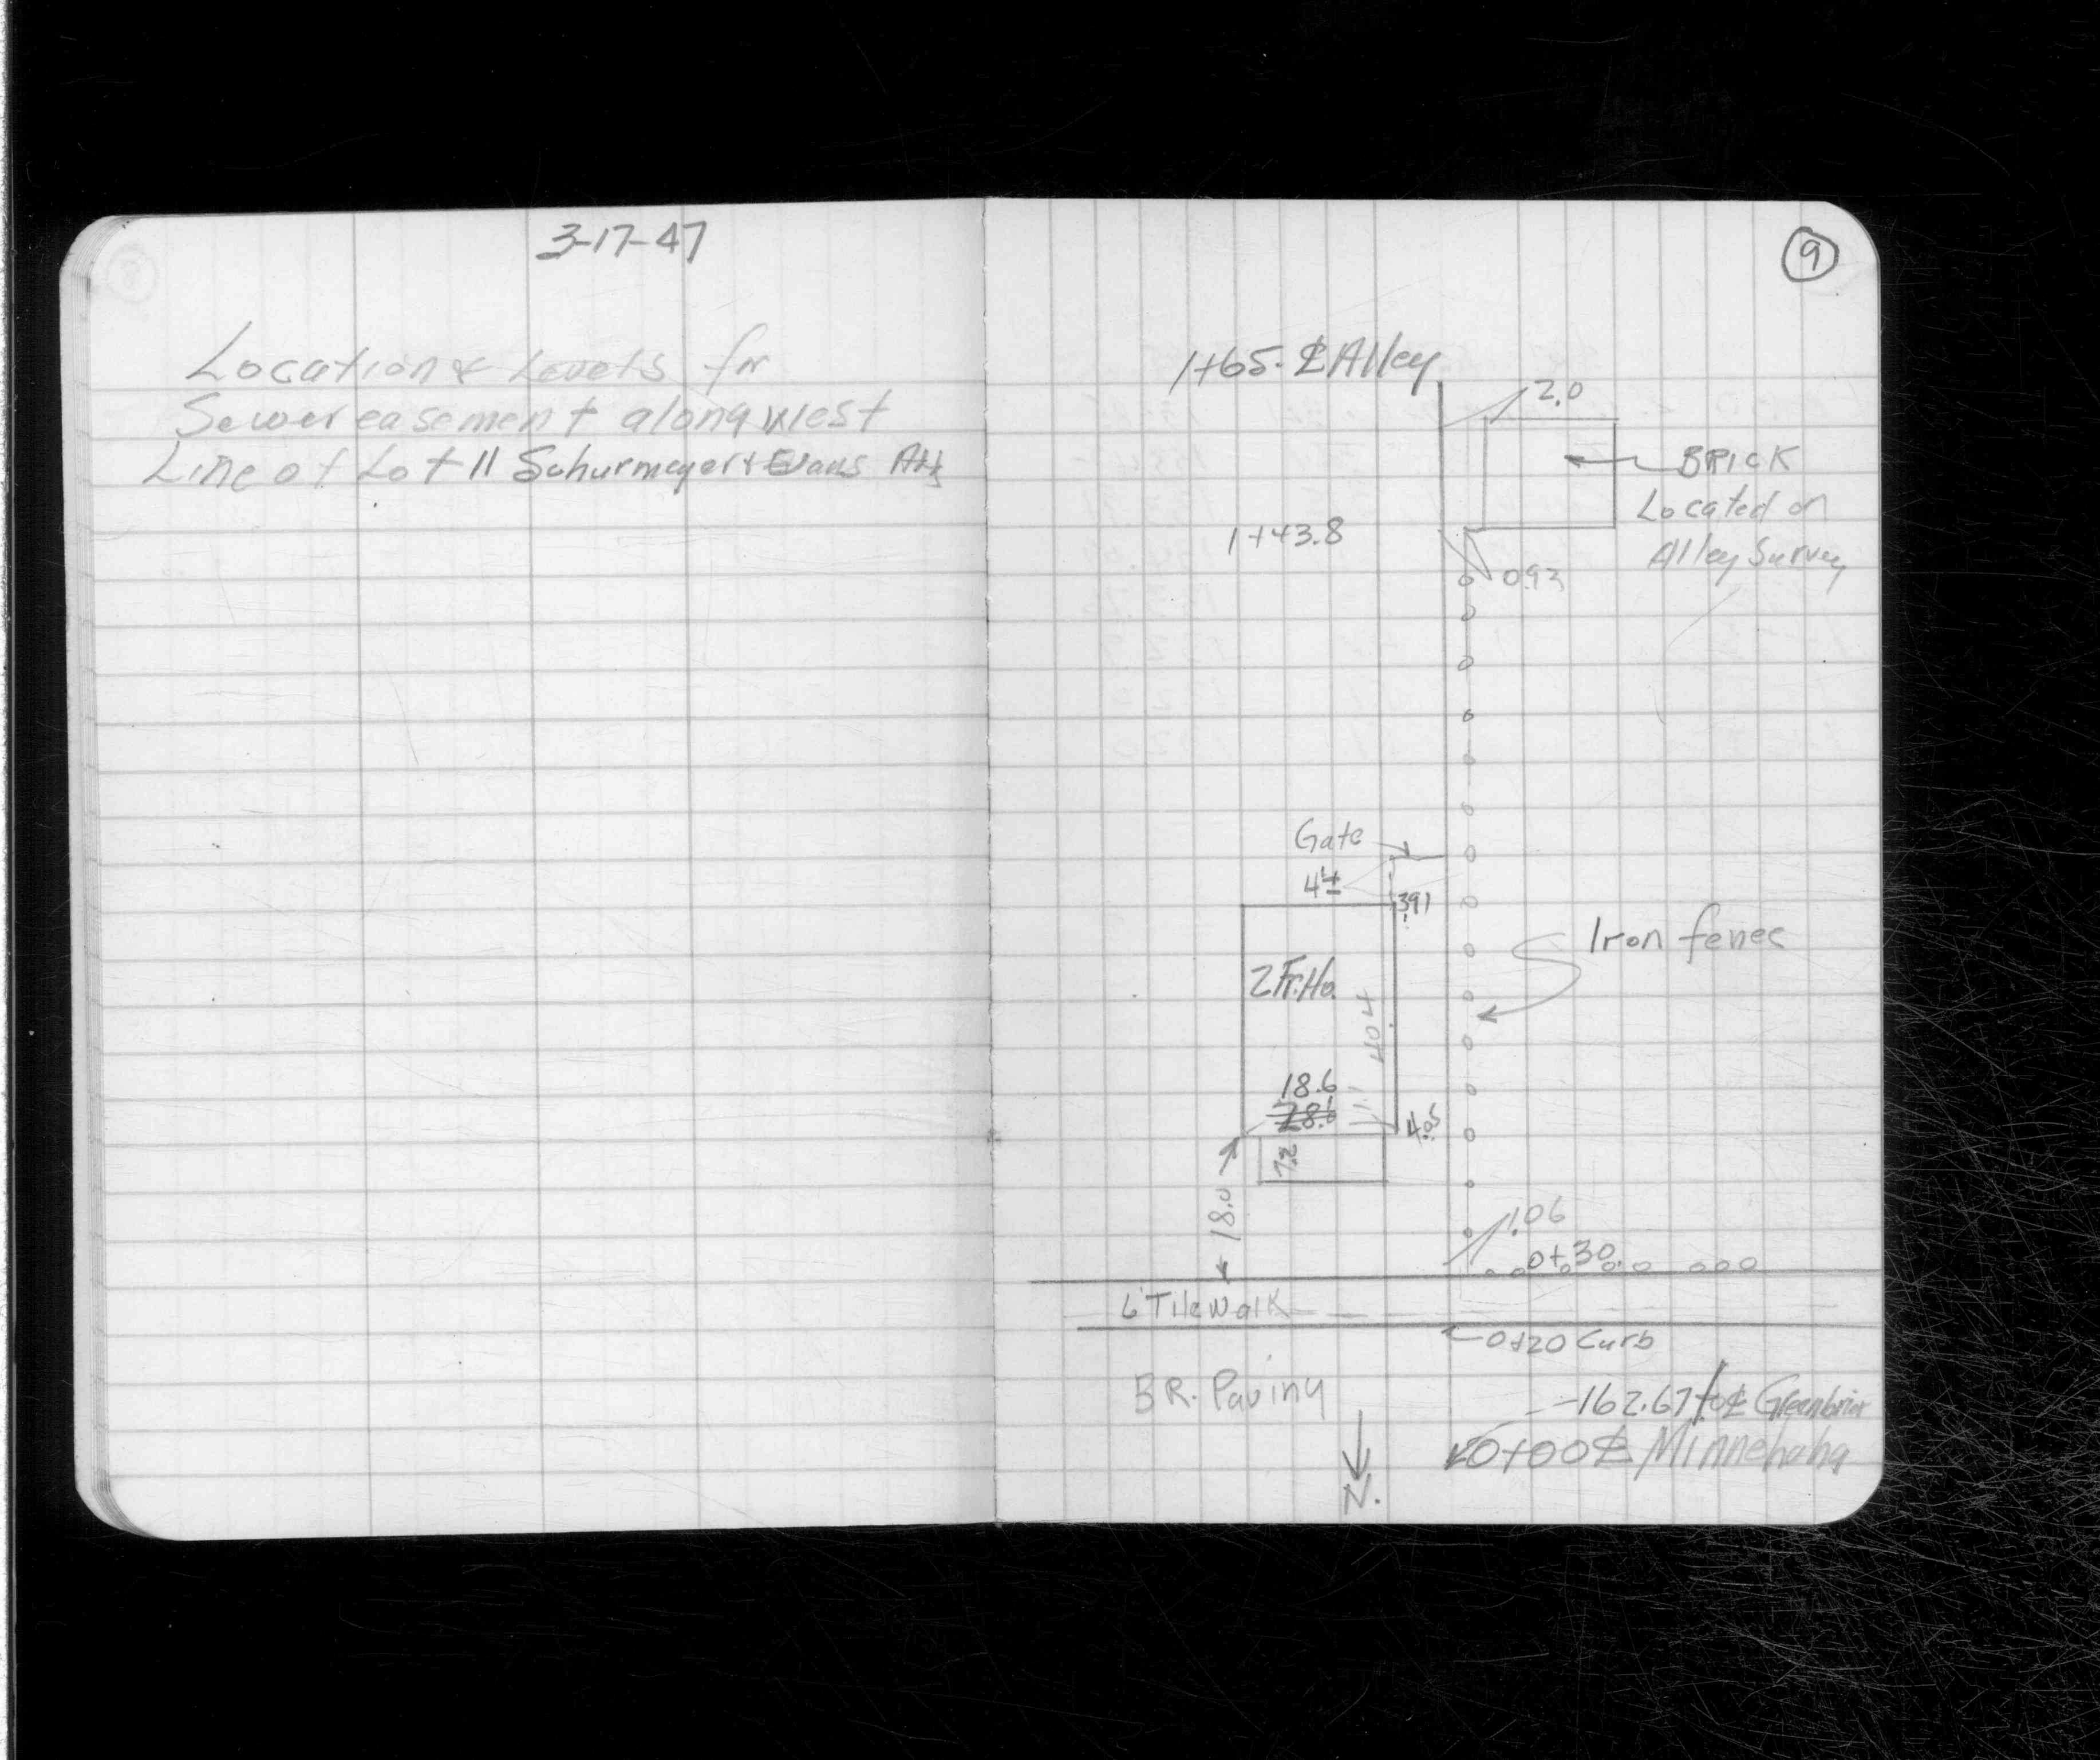 3-17-47
Location & Levels for
Sewer easement along west
Line of Lot 11 Schurmeyer & Evans
9
1+65. ℄ Alley
2.0
BRICK
Located on
Alley Survey
1+43.8
0.92
Gate
4'±
3.91
Iron fence
2 Fr. Ho.
40.4
18.6
28.6
1.1
4.05
7.2
18.0
1.06
0+30
6' Tile Walk
0+20 Curb
BR. Paving
162.67 to ℄ Greenbrier
0+00 ℄ Minnehaha
N.